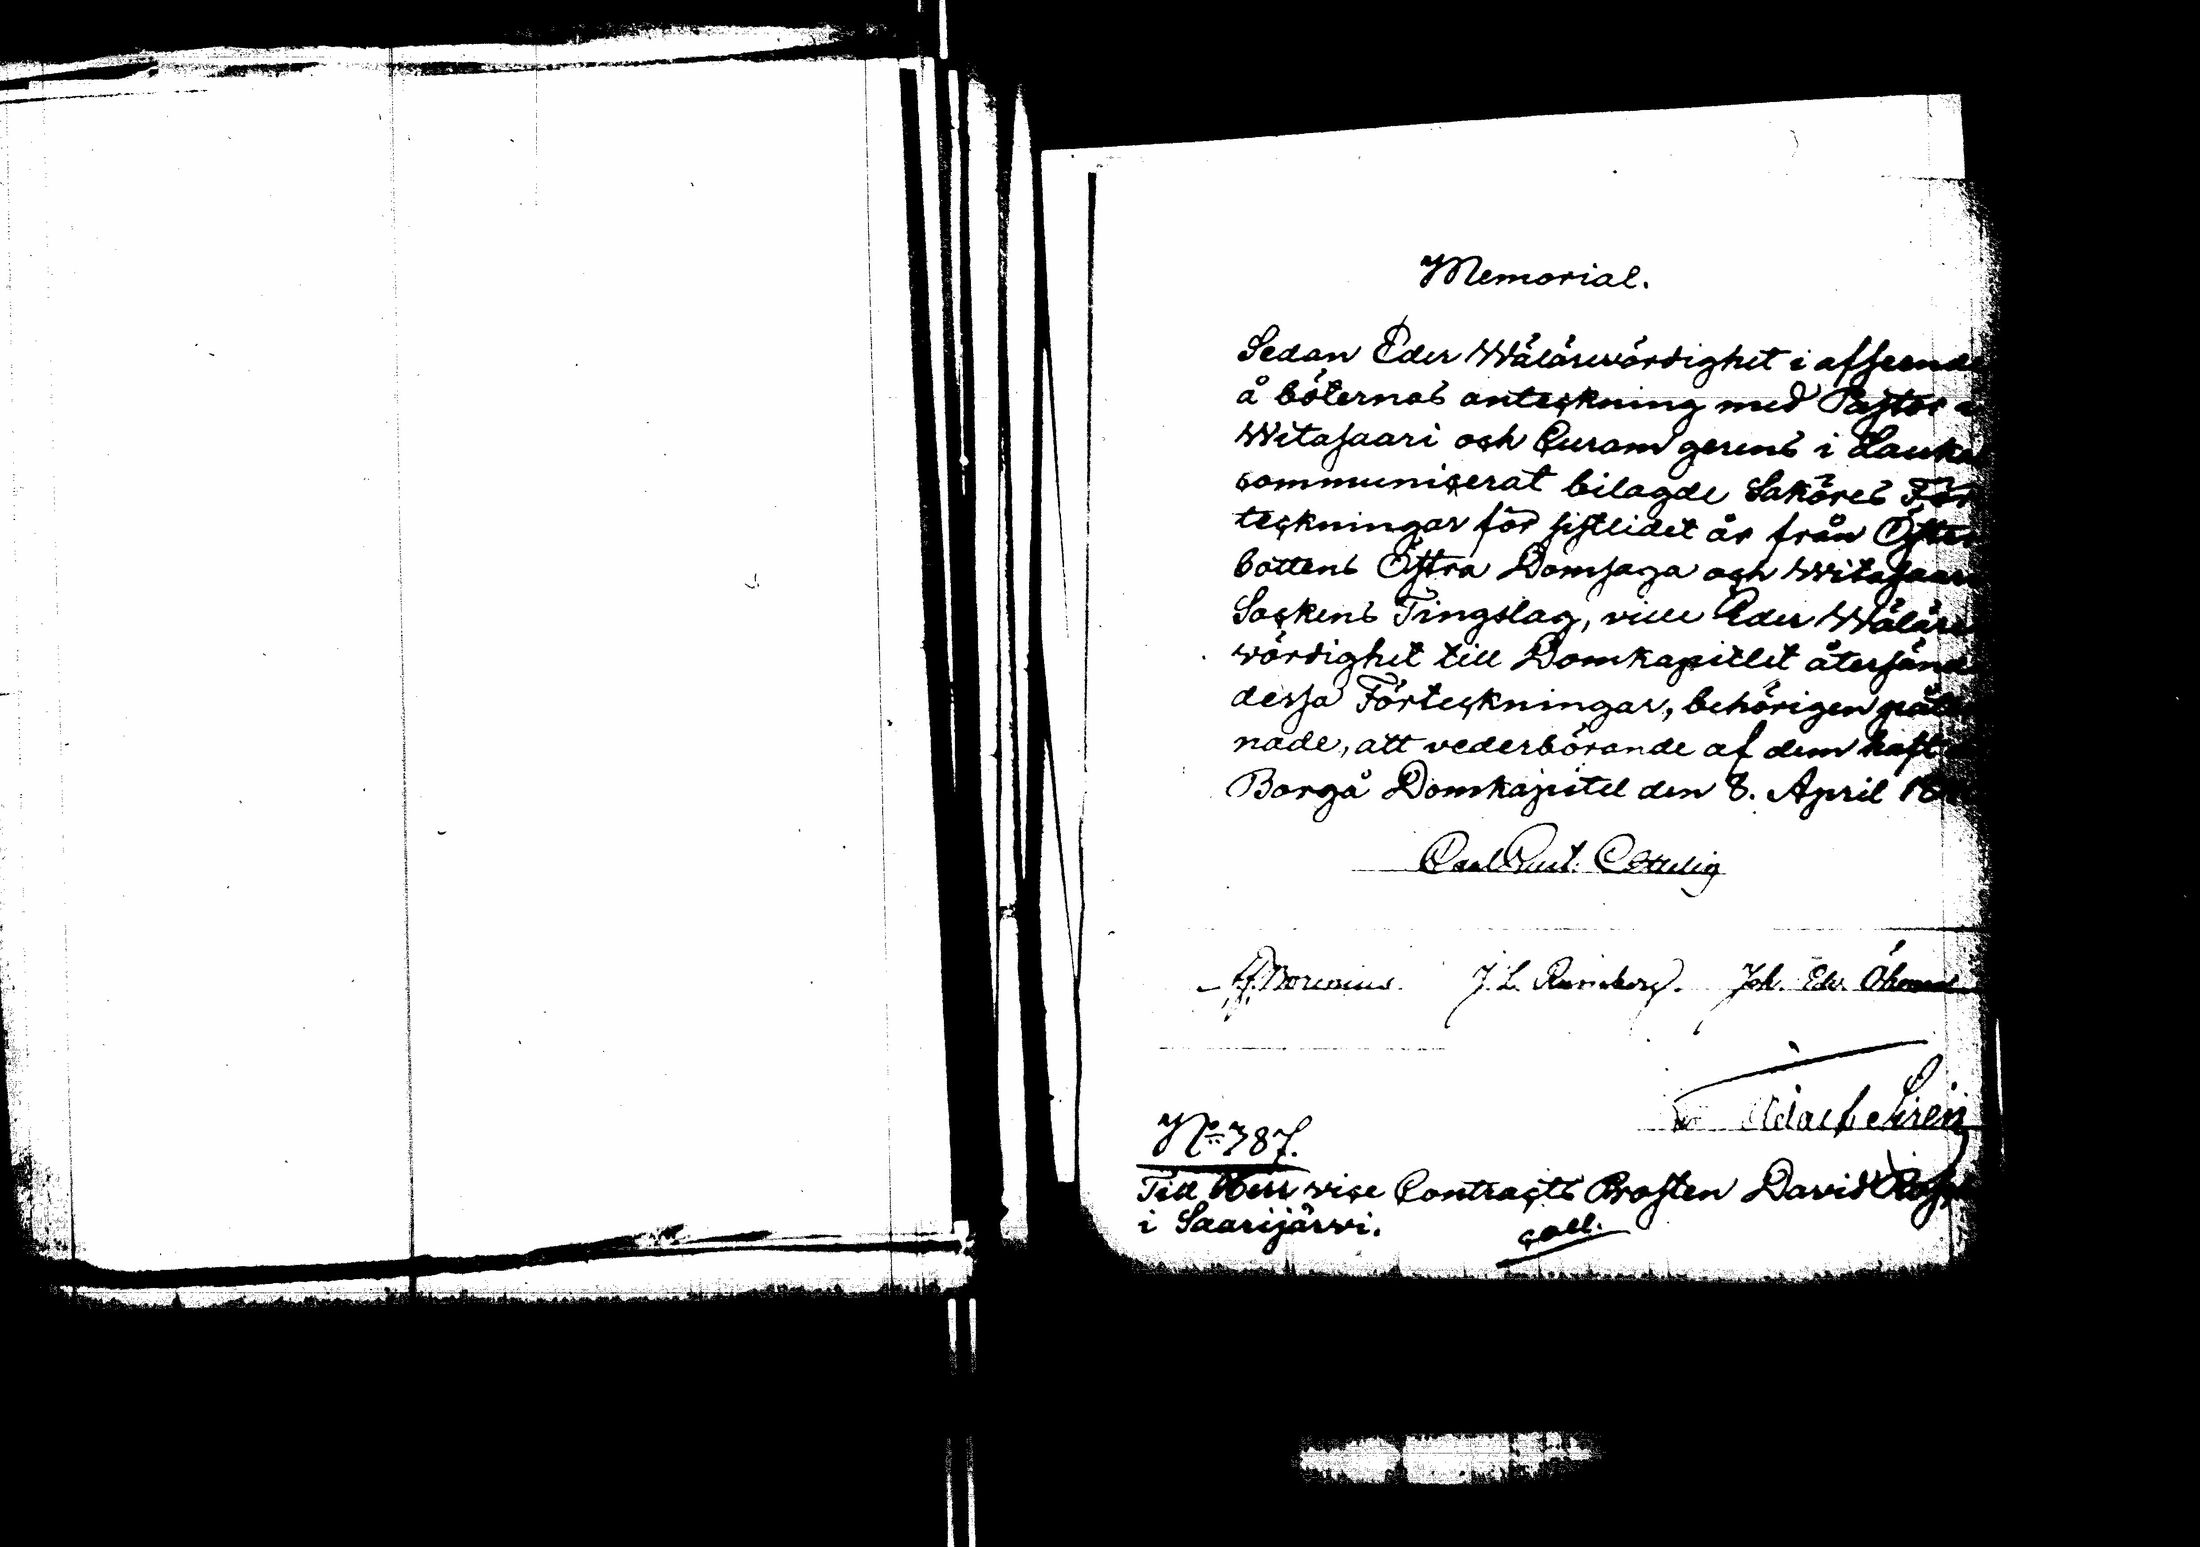 Memorial.
Sedan Eder Wälärewördighet i afseende
å böternas anteckning med Pastor
Witasaari och Curam gerens i Lauka
communicerat bilagde Saköres För
teckningar för sistlidet år från Öster
bottens Östra Domsaga och Witasaari
Sockens Tingslag, ville Eder Wäläre
wördighet till Domkapitlet återsänd
dessa Förteckningar, behörigen påteck
nade, att vederbörande af dem haft
Borgå Domkapitel den 8. April
Carl Gust. Ottelin
Borenius. J. L. Runeberg. Joh. Edv. Öhman
Siren
No 787.
Till Herr vice Contracts Prosten David
i Saarijärvi.
coll.